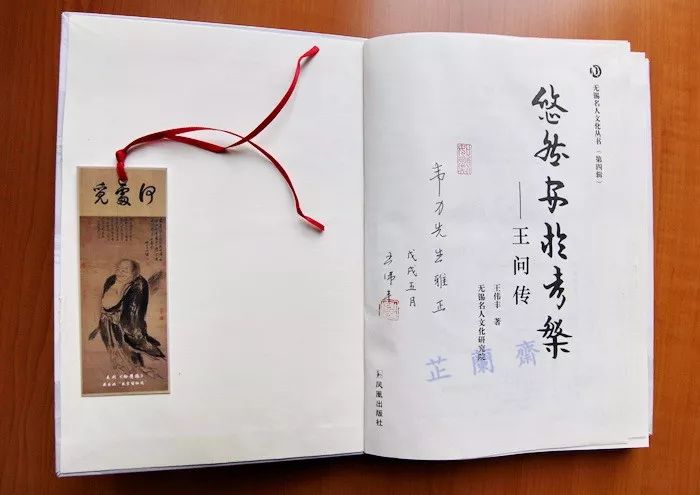 无锡名人文化丛书(第四辑)
悠然安於考槃
——王问传
王伟丰 著
无锡名人文化研究院
韦力先生雅正
戊戌五月
王伟丰
芷蘭齋
凤凰出版社
何處覓